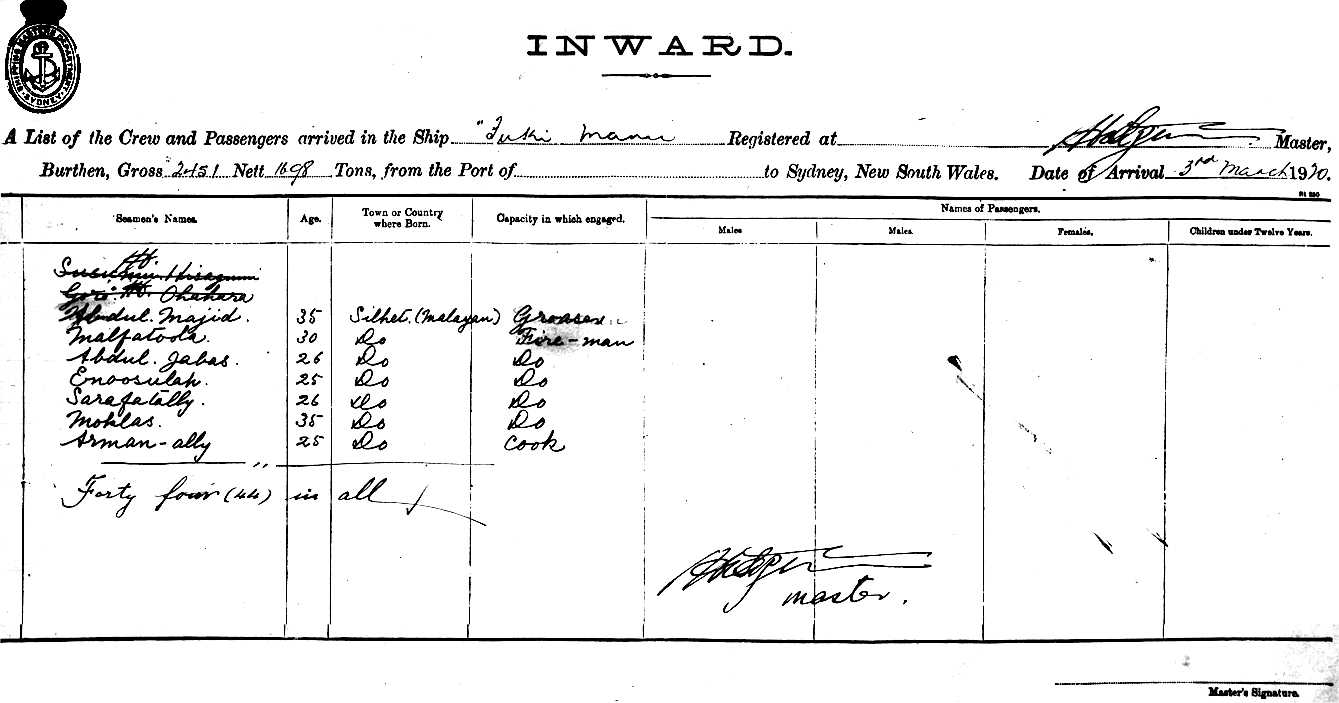 SHIPPING MASTER'S DEPARTMENT SYDNEY
INWARD.
A List of the Crew and Passengers arrived in the Ship "Fuki Maru Registered at Master,
Burthen, Gross 2451 Nett 1698 Tons, from the Port of to Sydney, New South Wales. Date of Arrival 3rd March 1920.
Seamen's Names. Age. Town or Country where Born. Capacity in which engaged. Names of Passengers.
Males Males. Females, Children under Twelve Years.
H. Ohahara
Abdul. Majid. 35 Silhet. (Malayan) Greaser
Malfatoola. 30 Do Fire-man
Abdul. Jabas. 26 Do Do
Enoosulah. 25 Do Do
Sarafatally. 26 Do Do
Mohlas. 35 Do Do
Arman-ally 25 Do Cook
Forty four (44) in all
master.
Master's Signature.